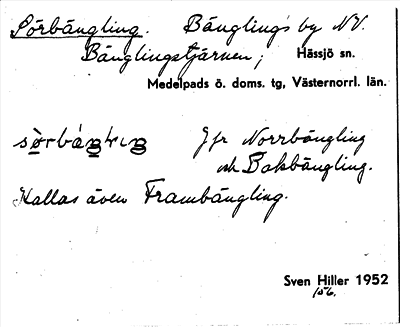 Sörbängling. Bänglings by NV.
Bänglingstjärnen; Hässjö sn.
Medelpads ö. doms. tg, Västernorrl. län.
Jfr Norrbängling
och Bakbängling.
Kallas även Frambängling.
Sven Hiller 1952